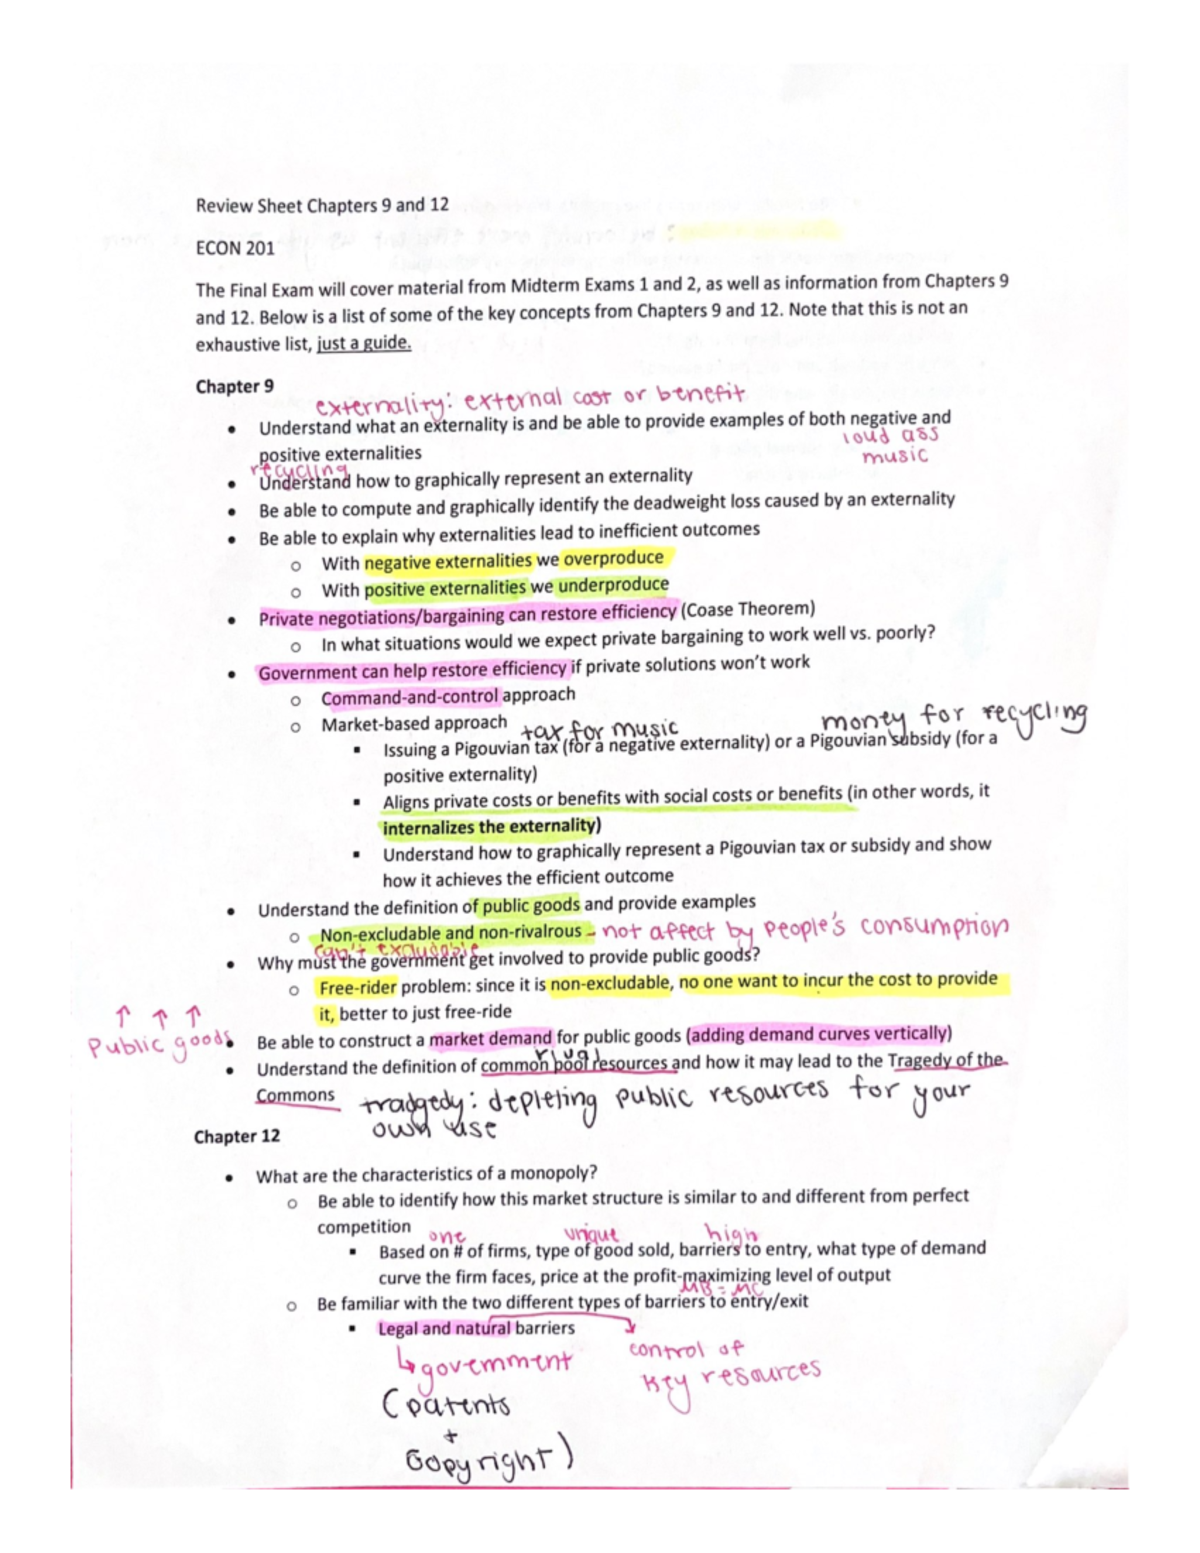 Review Sheet Chapters 9 and 12
ECON 201
The Final Exam will cover material from Midterm Exams 1 and 2, as well as information from Chapters 9
and 12. Below is a list of some of the key concepts from Chapters 9 and 12. Note that this is not an
exhaustive list, just a guide.
Chapter 9
externality: external cost or benefit
• Understand what an externality is and be able to provide examples of both negative and
loud ass
positive externalities
music
recycling
• Understand how to graphically represent an externality
• Be able to compute and graphically identify the deadweight loss caused by an externality
• Be able to explain why externalities lead to inefficient outcomes
o With negative externalities we overproduce
o With positive externalities we underproduce
• Private negotiations/bargaining can restore efficiency (Coase Theorem)
o In what situations would we expect private bargaining to work well vs. poorly?
• Government can help restore efficiency if private solutions won't work
o Command-and-control approach
o Market-based approach
tax for music
money for recycling
▪ Issuing a Pigouvian tax (for a negative externality) or a Pigouvian subsidy (for a
positive externality)
▪ Aligns private costs or benefits with social costs or benefits (in other words, it
internalizes the externality)
▪ Understand how to graphically represent a Pigouvian tax or subsidy and show
how it achieves the efficient outcome
• Understand the definition of public goods and provide examples
o Non-excludable and non-rivalrous - not affect by people's consumption
can't excludable
• Why must the government get involved to provide public goods?
o Free-rider problem: since it is non-excludable, no one want to incur the cost to provide
it, better to just free-ride
↑ ↑ ↑
public goods
• Be able to construct a market demand for public goods (adding demand curves vertically)
rival
• Understand the definition of common pool resources and how it may lead to the Tragedy of the
Commons
tradgedy: depleting public resources for your
own use
Chapter 12
• What are the characteristics of a monopoly?
o Be able to identify how this market structure is similar to and different from perfect
competition
one unique high
▪ Based on # of firms, type of good sold, barriers to entry, what type of demand
curve the firm faces, price at the profit-maximizing level of output
MB = MC
o Be familiar with the two different types of barriers to entry/exit
▪ Legal and natural barriers
↳ government
control of
key resources
(patents
+
copyright)